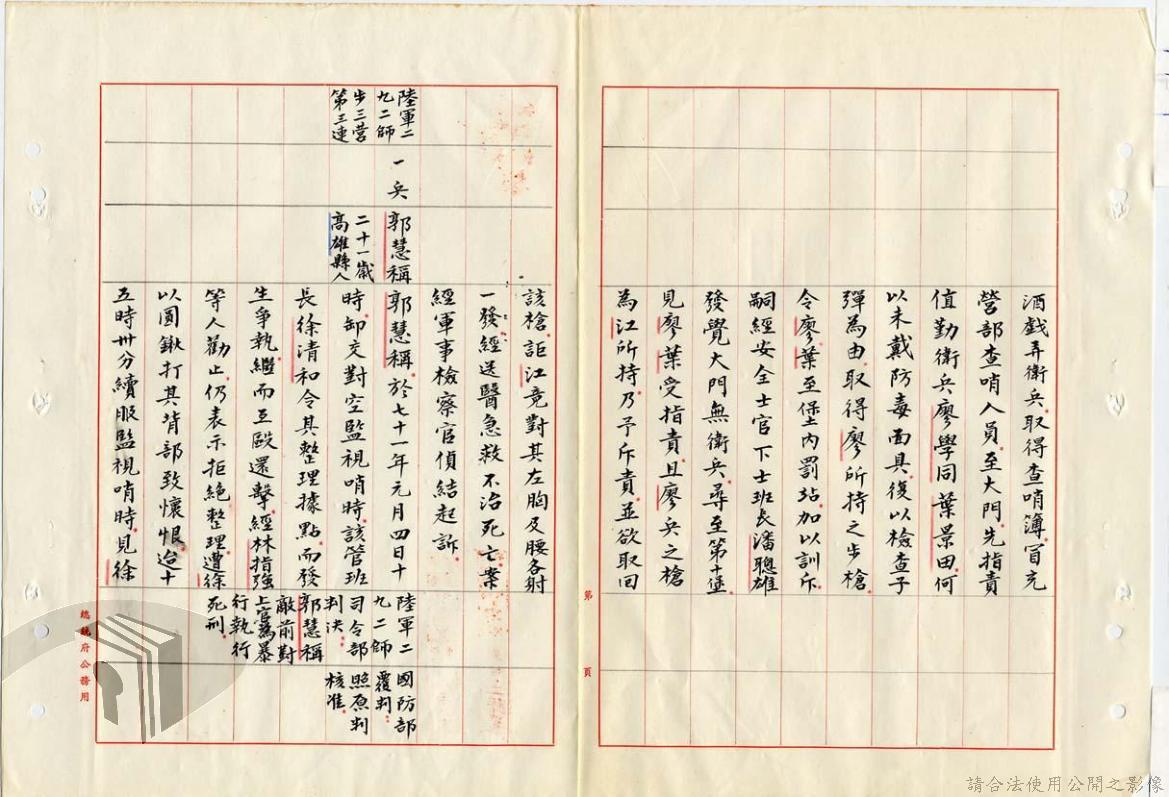 酒戲弄衛兵取得查哨簿冒充
營部查哨人員至大門先指責
值勤衛兵廖學同葉景田何
以未戴防毒面具復以檢查子
彈為由取得廖所持之步槍
令廖葉至堡內罰站加以訓斥
嗣經安全士官下士班長潘聰雄
發覺大門無衛兵尋至第十堡
見廖葉受指責且廖兵之槍
為江所持乃予斥責並欲取回
第 頁
該槍詎江竟對其左胸及腰各射
一發經送醫急救不治死亡案
經軍事檢察官偵結起訴
陸軍二
九二師
步三營
第三連
一兵
郭慧稱
二十一歲
高雄縣人
郭慧稱於七十一年元月四日十
時卸交對空監視哨時該管班
長徐清和令其整理據點而發
生爭執繼而互毆還擊經林指強
等人勸止仍表示拒絕整理遭徐
以圓鍬打其背部致懷恨迨十
五時卅分續服監視哨時見徐
陸軍二
九二師
司令部
判決
郭慧稱
敵前對
上官為暴
行執行
死刑
國防部
覆判
照原判
核准
總統府公務用
請合法使用公開之影像